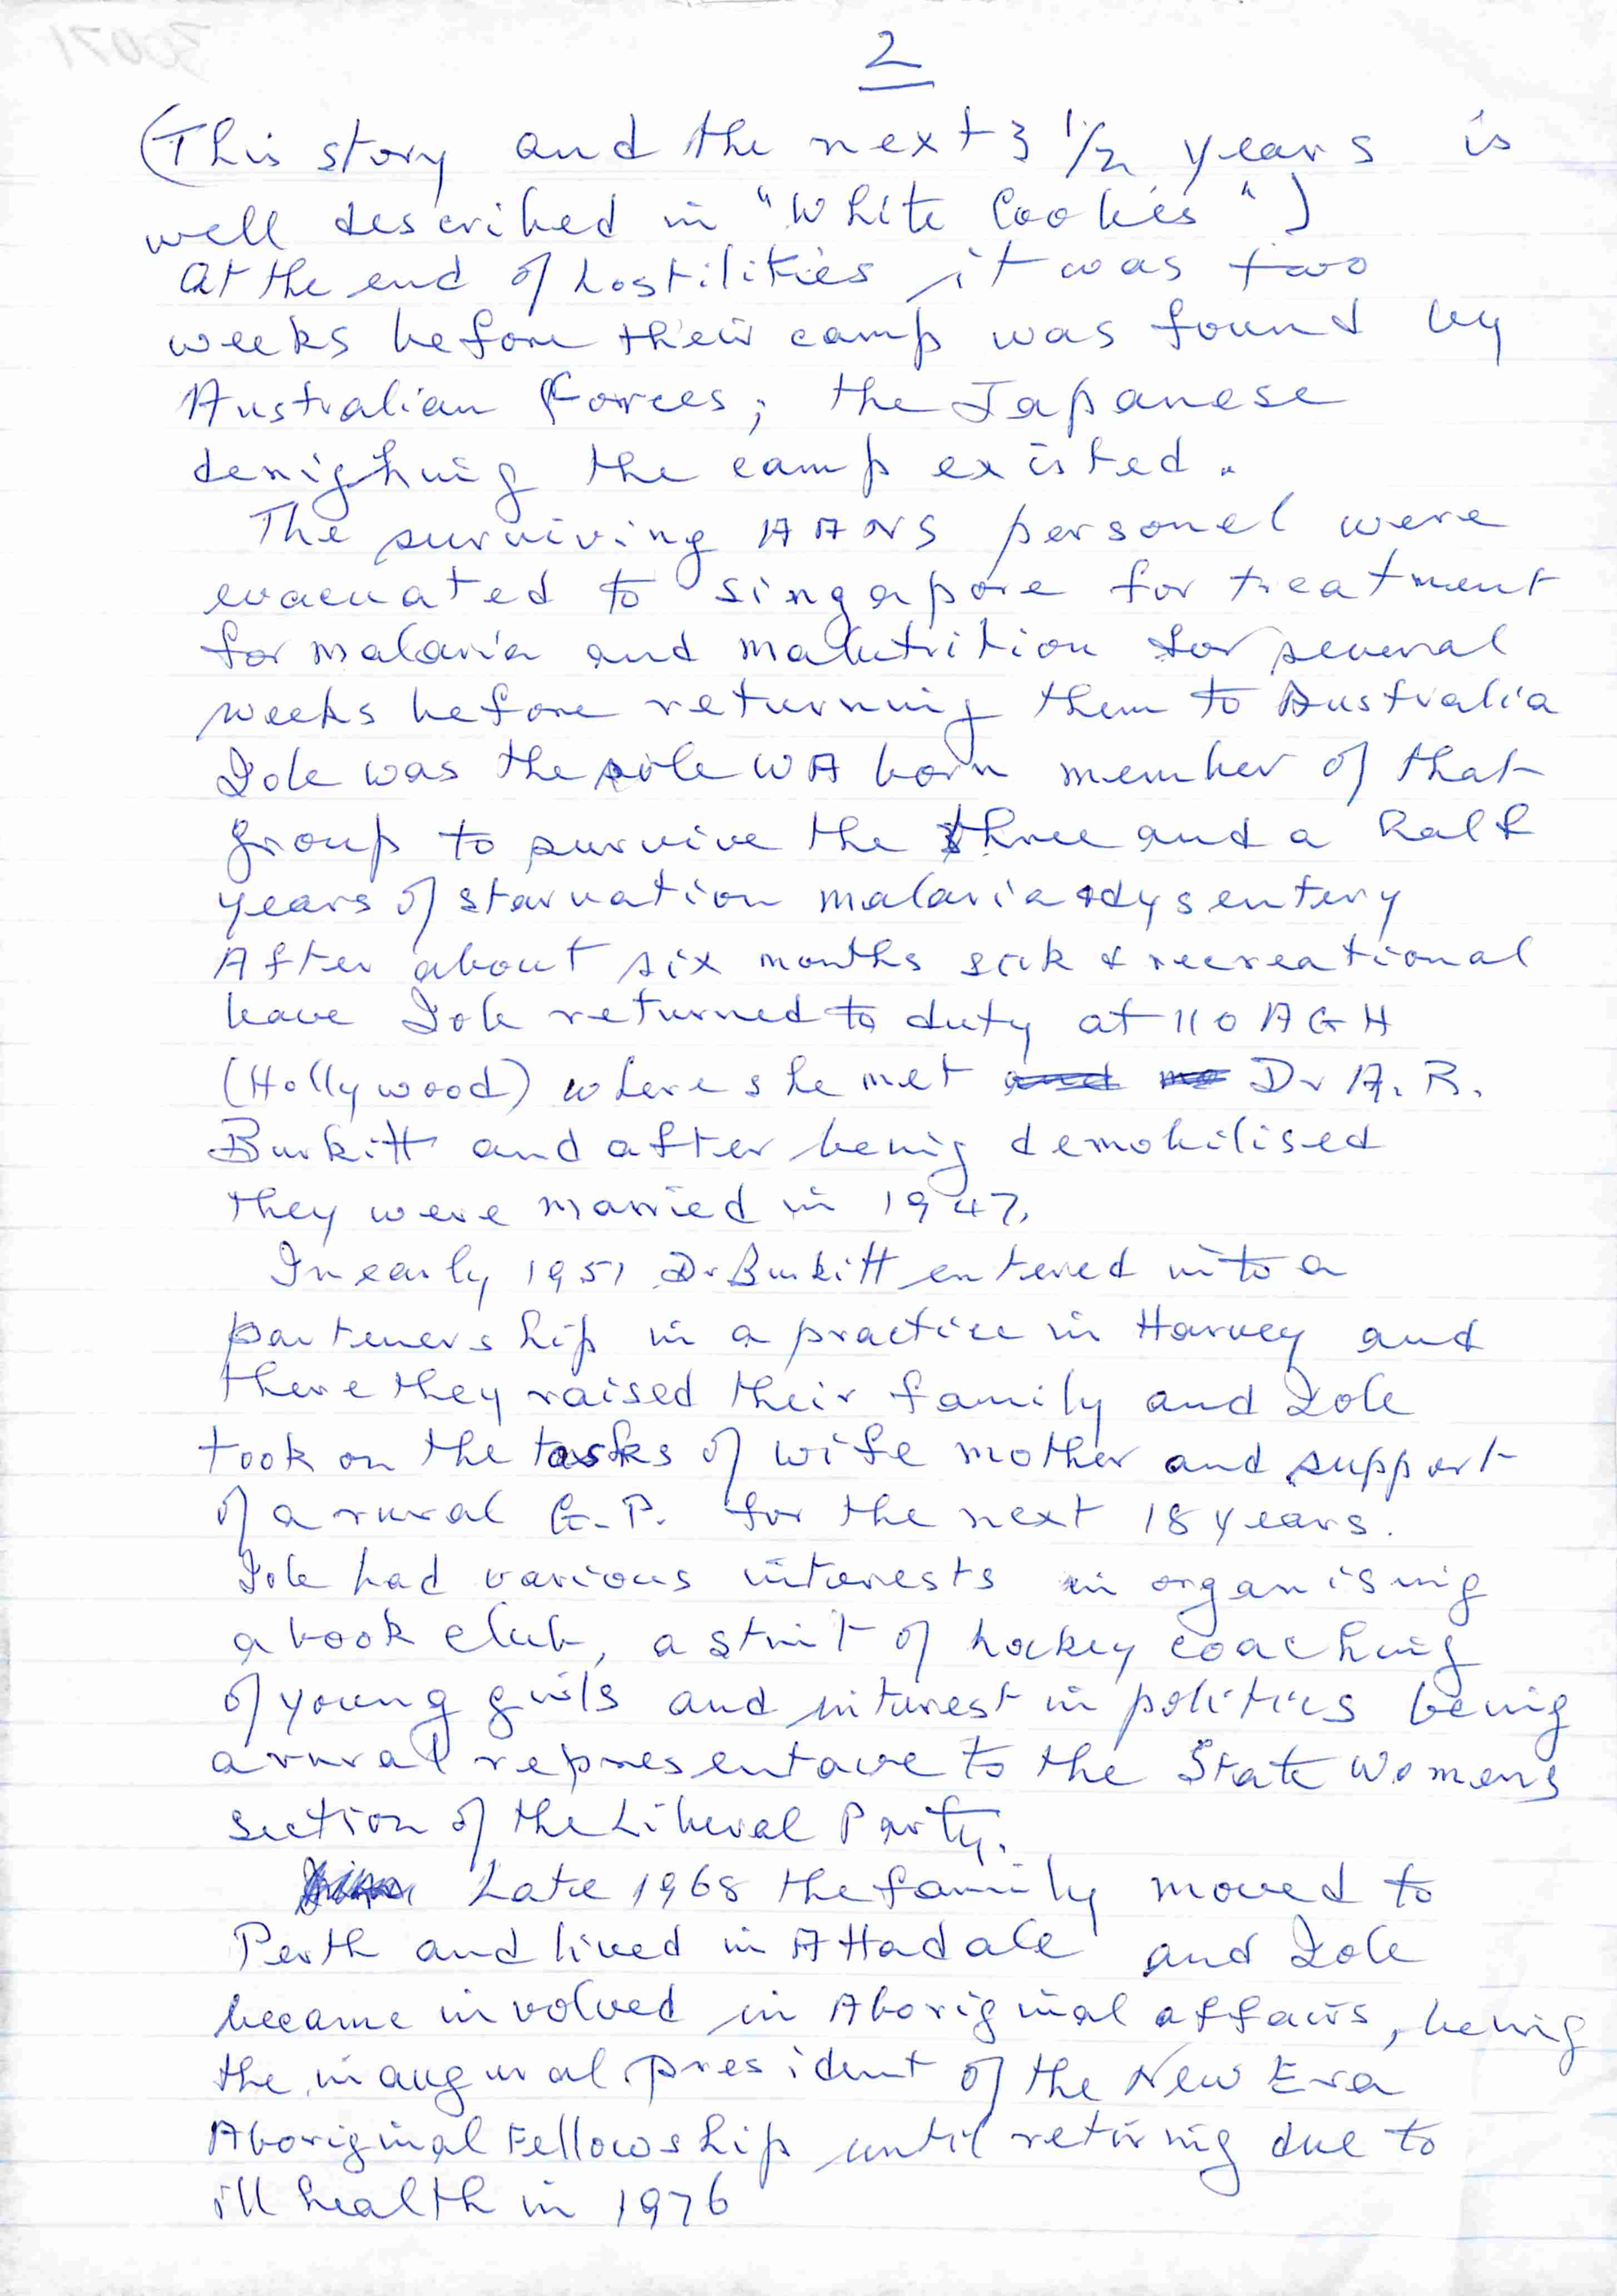 2
(This story and the next 3 1/2 years is
well described in "White Coolies")
At the end of hostilities it was two
weeks before their camp was found by
Australian Forces; the Japanese
denighing the camp existed.
The surviving AANS personel were
evacuated to Singapore for treatment
for malaria and malutrition for several
weeks before returning them to Australia
Iole was the sole WA born member of that
group to survive the three and a half
years of starvation malaria & dysentery
After about six months sick & recreational
leave Iole returned to duty at 110 AGH
(Hollywood) where she met Dr A. R.
Burkitt and after being demobilised
they were married in 1947.
In early 1951 Dr Burkitt entered into a
partenership in a practice in Harvey and
there they raised their family and Iole
took on the tasks of wife mother and support
of a rural G.P. for the next 18 years.
Iole had various interests in organising
a book club, a stint of hockey coaching
of young girls and interest in politics being
a rural representave to the State Womens
section of the Liberal Party.
Late 1968 the family moved to
Perth and lived in Attadale and Iole
became involved in Aboriginal affairs, being
the inaugural president of the New Era
Aboriginal Fellowship until retiring due to
ill health in 1976